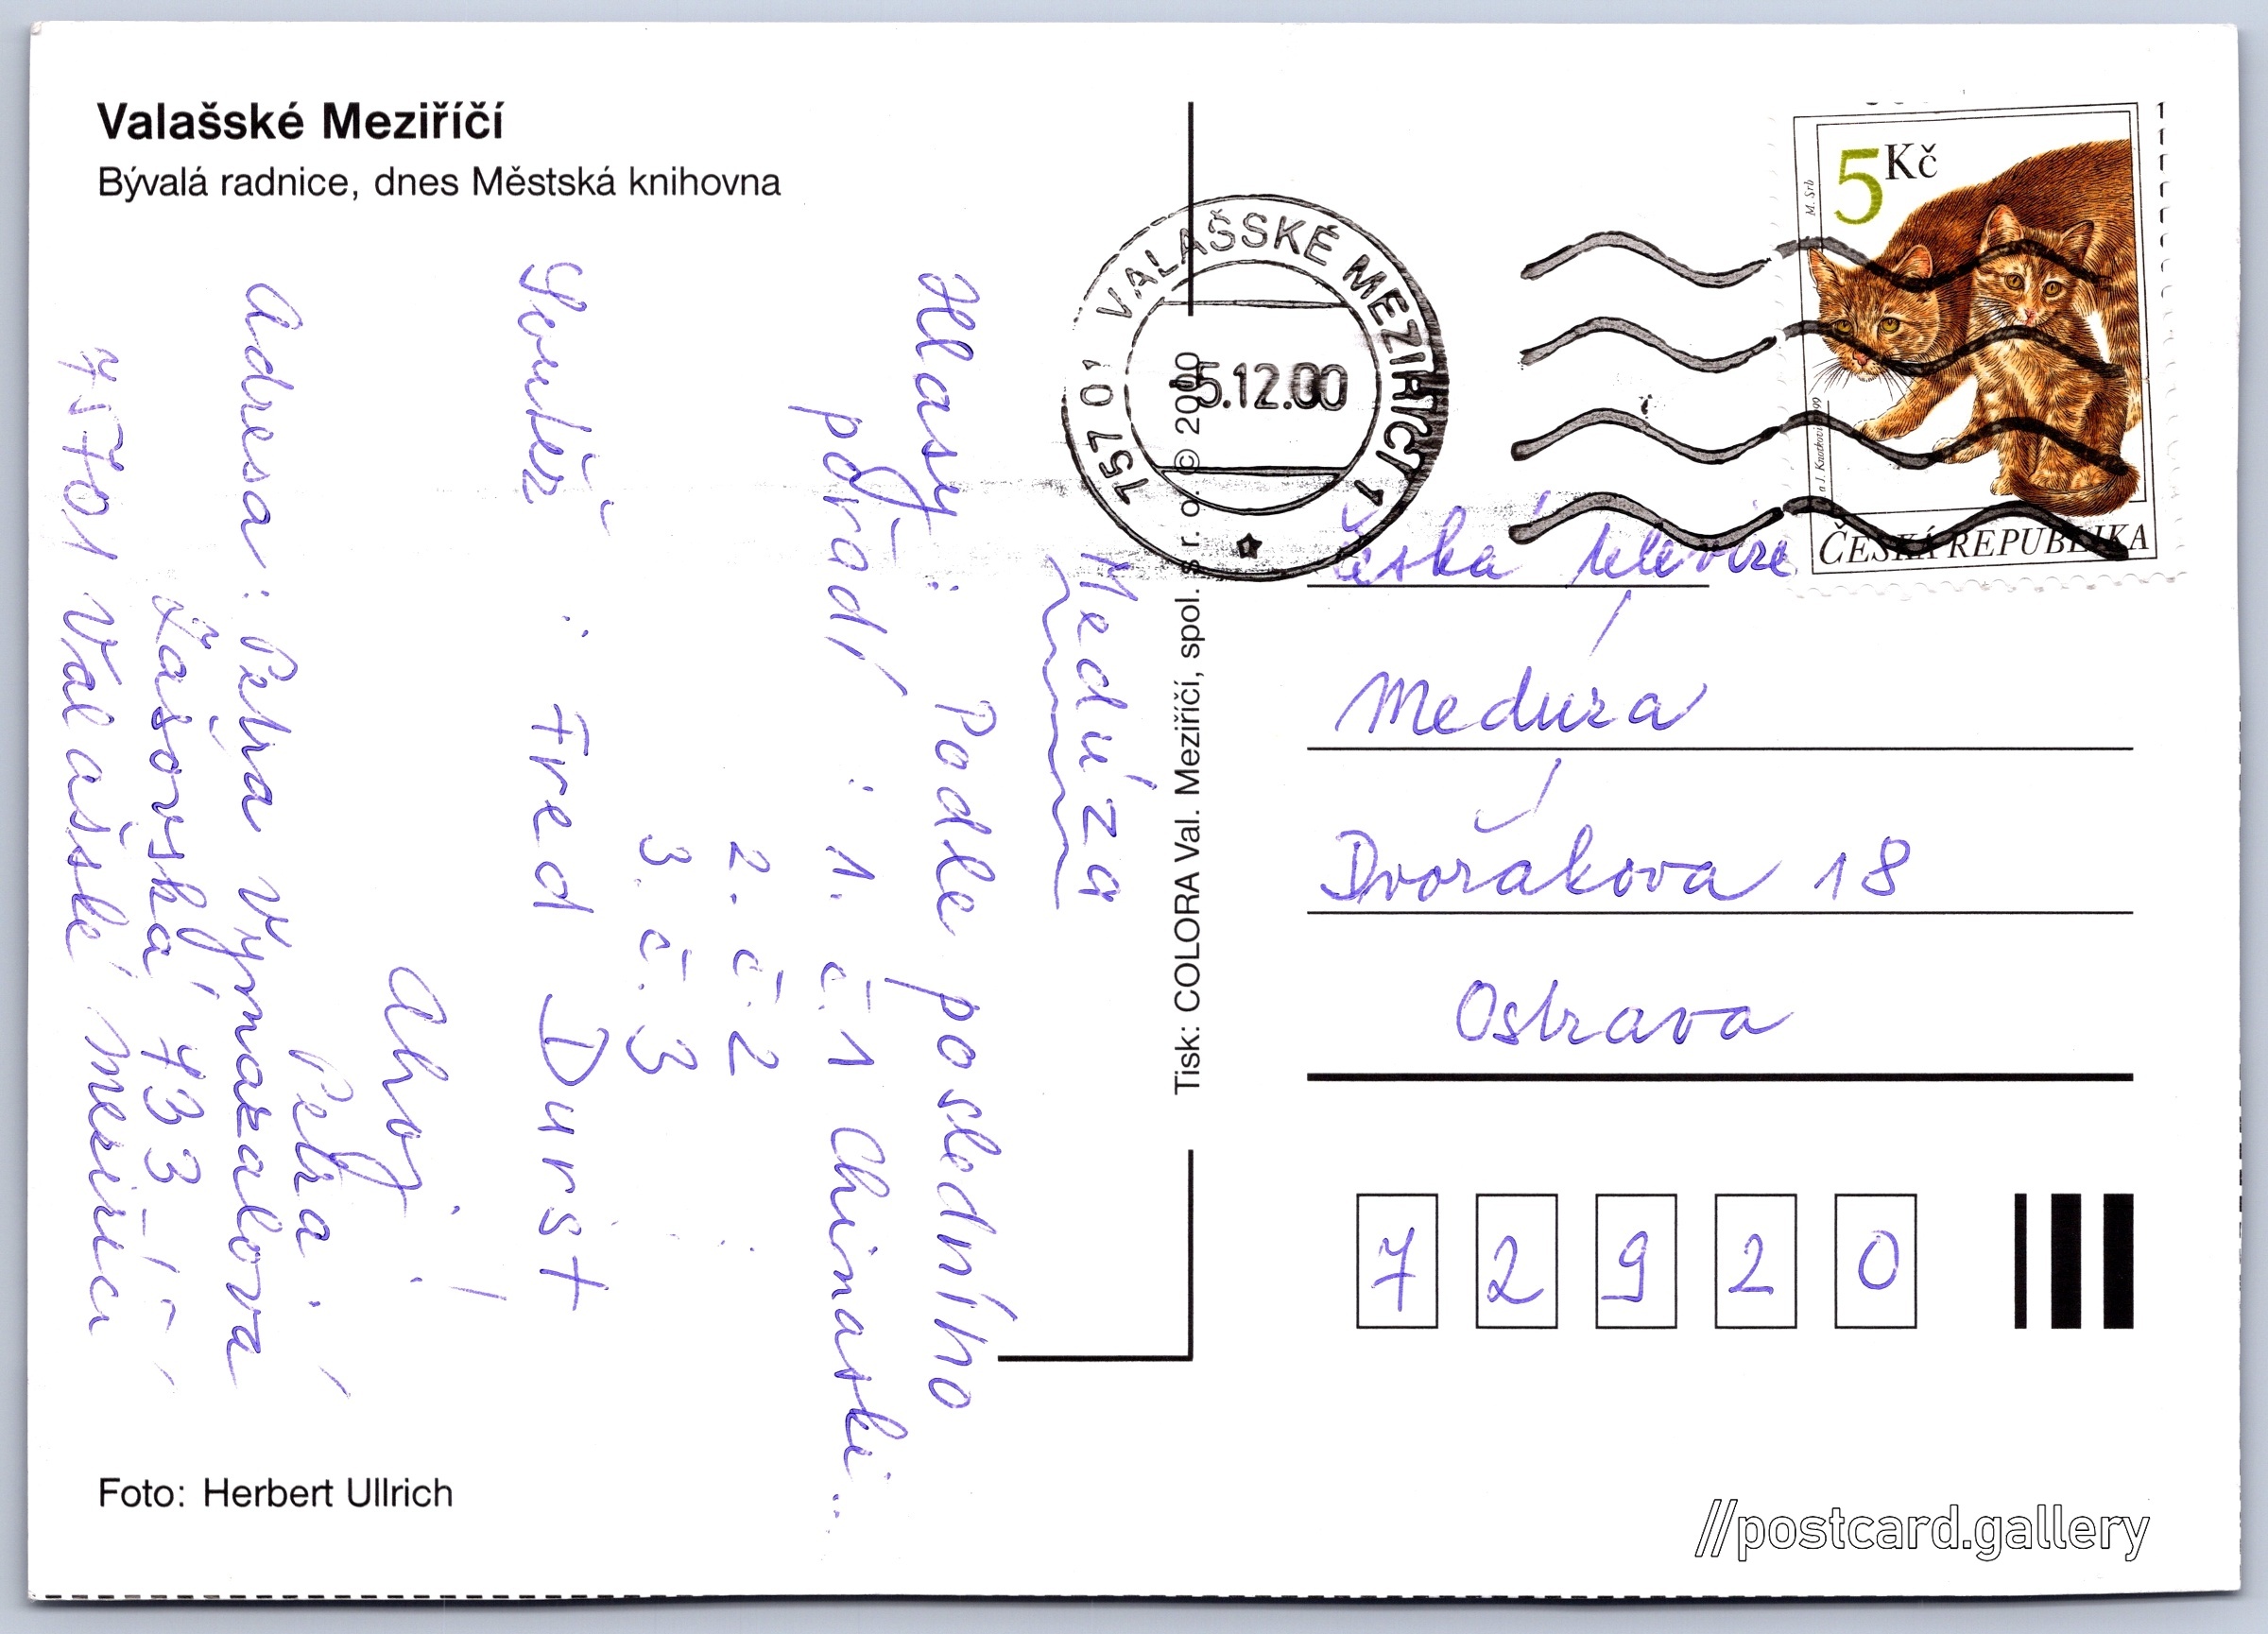 Valašské Meziříčí
Bývalá radnice, dnes Městská knihovna
Medúza
Hlasy: Podle posledního
pořadí: 1. č.1 Chinaski...
2. č.2
3. č.3
Soutěž: Fred Durst
Ahoj!
Petra!
Adresa: Petra Vymazalová
Zašovská 433
757 01 Valašské Meziříčí
Foto: Herbert Ullrich
Tisk: COLORA Val. Meziříčí, spol. s r. o. © 2000
757 01 VALAŠSKÉ MEZIŘÍČÍ 1
5.12.00
5 Kč
M. Srb
ČESKÁ REPUBLIKA
Česká televize
Medúza
Dvořákova 18
Ostrava
7 2 9 2 0
//postcard.gallery